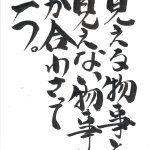 見える物事と
見えない物事
が合わさって
一つ。